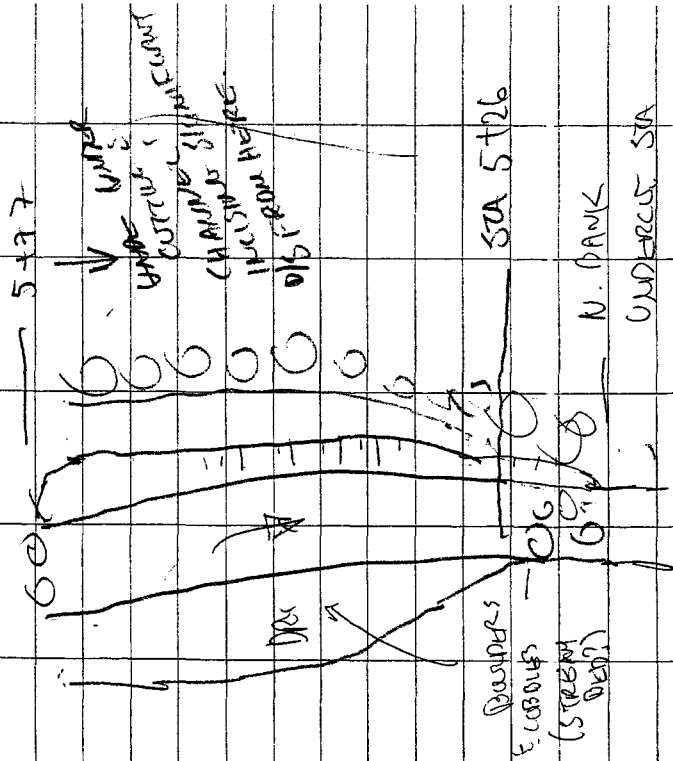 5+77
UNDER
CUTTING &
CHANNEL SIGNIFICANT
INCISION
D/S FROM HERE.
STA 5+26
N. BANK
UNDERCUT STA
BOULDERS
& COBBLES
(STREAM
BED?)